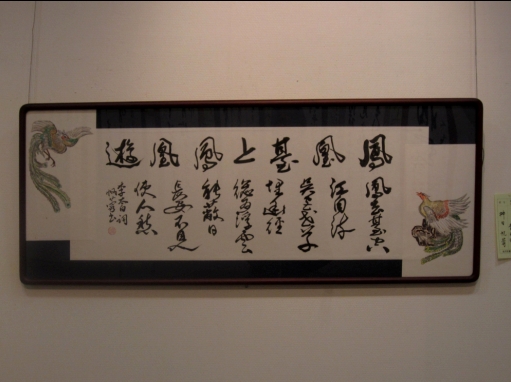 鳳凰臺上鳳凰遊
鳳去臺空
江自流
吳宮花草
埋幽徑
總為浮雲
能蔽日
長安不見
使人愁
李白詞